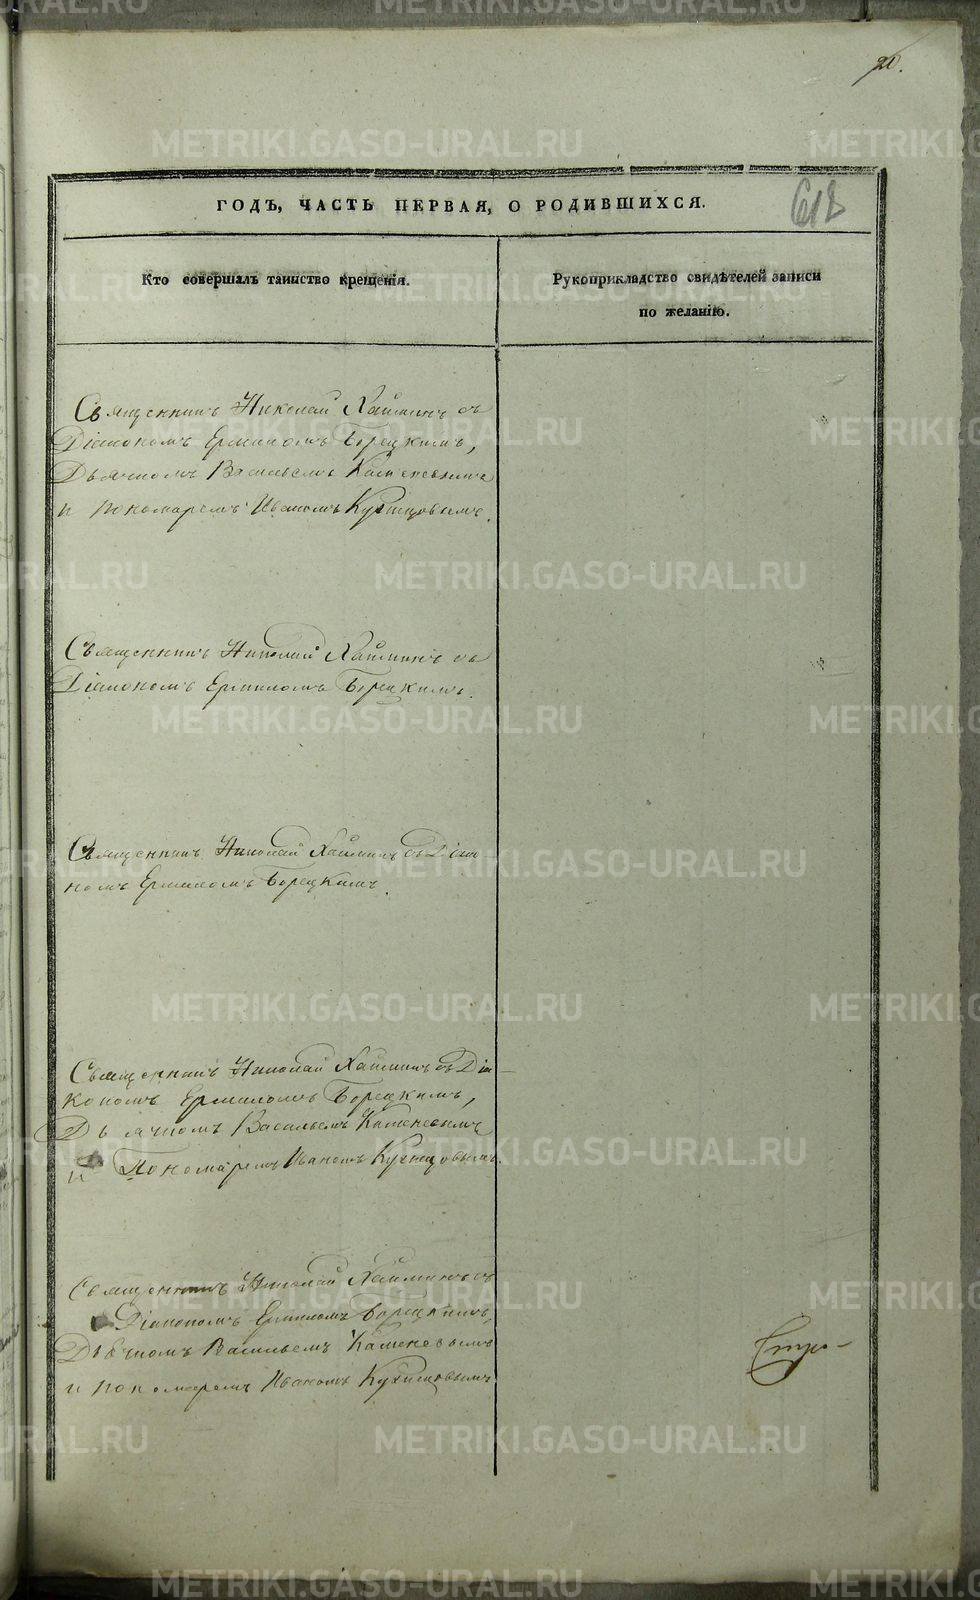 20.
618
ГОДЪ, ЧАСТЬ ПЕРВАЯ, О РОДИВШИХСЯ.
Кто совершалъ таинство крещенія.
Рукоприкладство свидѣтелей записи
по желанію.
Священникъ Николай Хаймин съ
Діакономъ Ермиломъ Борецкимъ,
Дьячкомъ Васильемъ Каменевымъ
и пономаремъ Иваномъ Кузнецовымъ.
Священникъ Николай Хайминъ съ
Діакономъ Ермиломъ Борецкимъ.
Священникъ Николай Хайминъ съ Діако-
номъ Ермиломъ Борецкимъ.
Священникъ Николай Хайминъ съ Діа-
кономъ Ермиломъ Борецкимъ,
Дьячкомъ Васильемъ Каменевымъ
и Пономаремъ Иваномъ Кузнецовымъ.
Священникъ Николай Хайминъ съ
Діакономъ Ермиломъ Борецкимъ,
Дьячкомъ Васильемъ Каменевымъ
и пономаремъ Иваномъ Кузнецовымъ
METRIKI.GASO-URAL.RU